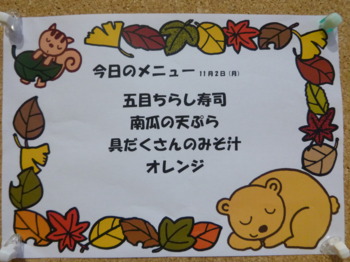 今日のメニュー 11月2日(月)
五目ちらし寿司
南瓜の天ぷら
具だくさんのみそ汁
オレンジ